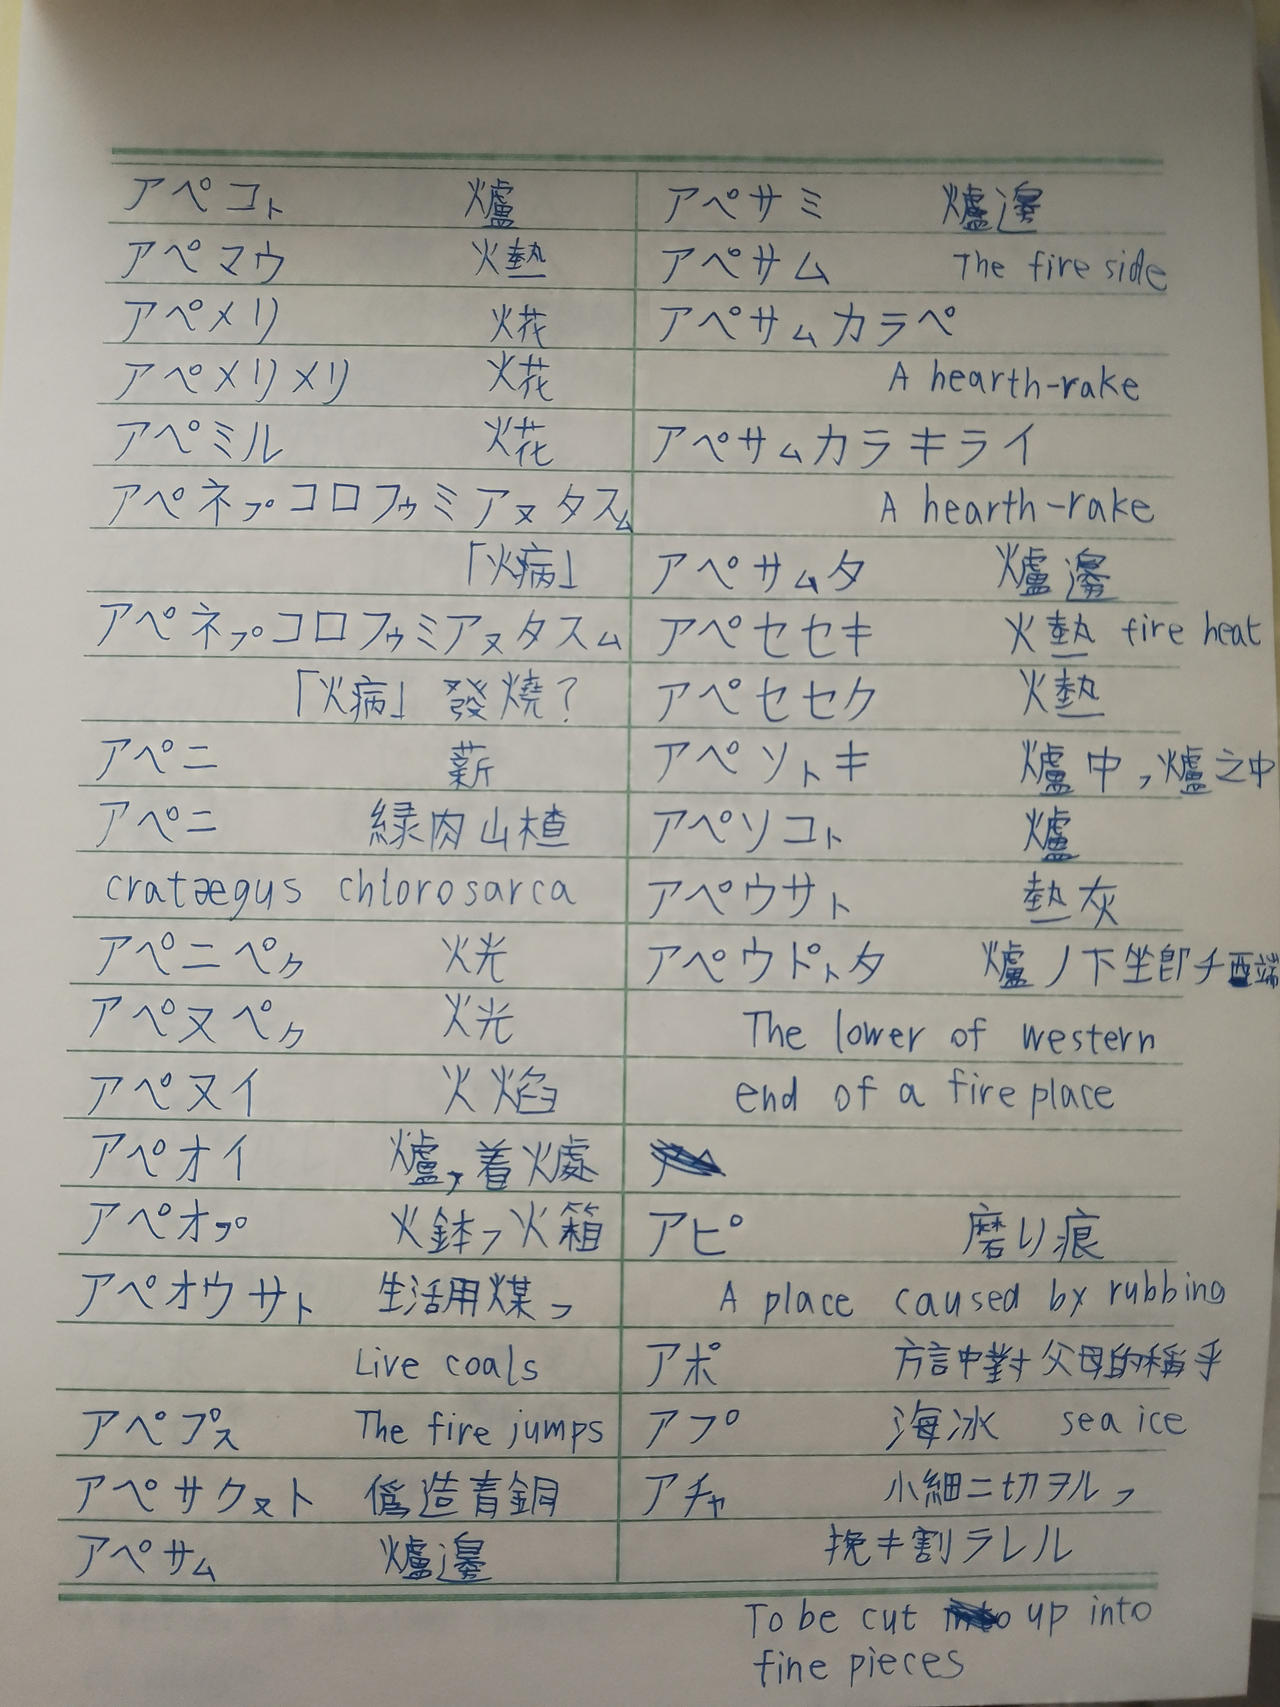 アペコㇳ 爐
アペマウ 火熱
アペメリ 火花
アペメリメリ 火花
アペミル 火花
アペネㇷ゚コロフゥミアㇴタスㇺ
「火病」
アペネㇷ゚コロフゥミアㇴタスㇺ
「火病」發燒?
アペニ 薪
アペニ 緑肉山楂
cratægus chlorosarca
アペニペㇰ 火光
アペヌペㇰ 火光
アペヌイ 火焰
アペオイ 爐,着火處
アペオㇷ゚ 火鉢,火箱
アペオウサㇳ 生活用煤,
Live coals
アペプㇲ The fire jumps
アペサクㇴト 僞造青銅
アペサㇺ 爐邊
アペサミ 爐邊
アペサム The fire side
アペサㇺカラペ
A hearth-rake
アペサㇺカラキライ
A hearth-rake
アペサㇺタ 爐邊
アペセセキ 火熱 fire heat
アペセセク 火熱
アペソㇳキ 爐中,爐之中
アペソコㇳ 爐
アペウサㇳ 熱灰
アペウㇳ゚タ 爐ノ下坐卽チ西端
The lower of western
end of a fire place
アピ 磨リ痕
A place caused by rubbing
アポ 方言中對父母的稱乎
アプ 海冰 sea ice
アチャ 小細ニ切ヲル,
挽キ割ラレル
To be cut up into
fine pieces